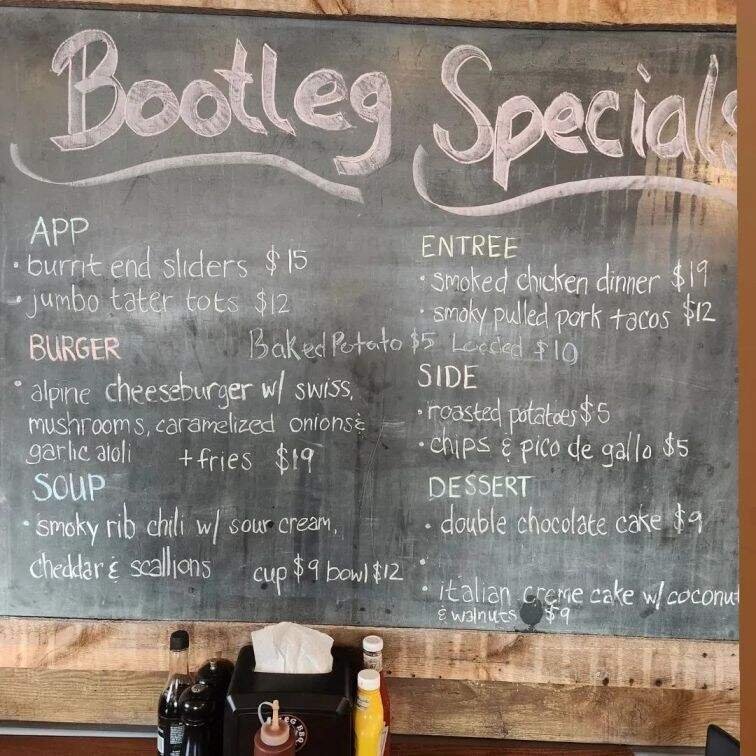 Bootleg Specials
APP
• burnt end sliders $15
• jumbo tater tots $12
BURGER
• alpine cheeseburger w/ swiss,
mushrooms, caramelized onions &
garlic aioli + fries $19
SOUP
• smoky rib chili w/ sour cream,
cheddar & scallions cup $9 bowl $12
ENTREE
• smoked chicken dinner $19
• smoky pulled pork tacos $12
Baked Potato $5 Loaded $10
SIDE
• roasted potatoes $5
• chips & pico de gallo $5
DESSERT
• double chocolate cake $9
•
• italian creme cake w/ coconut
& walnuts $9